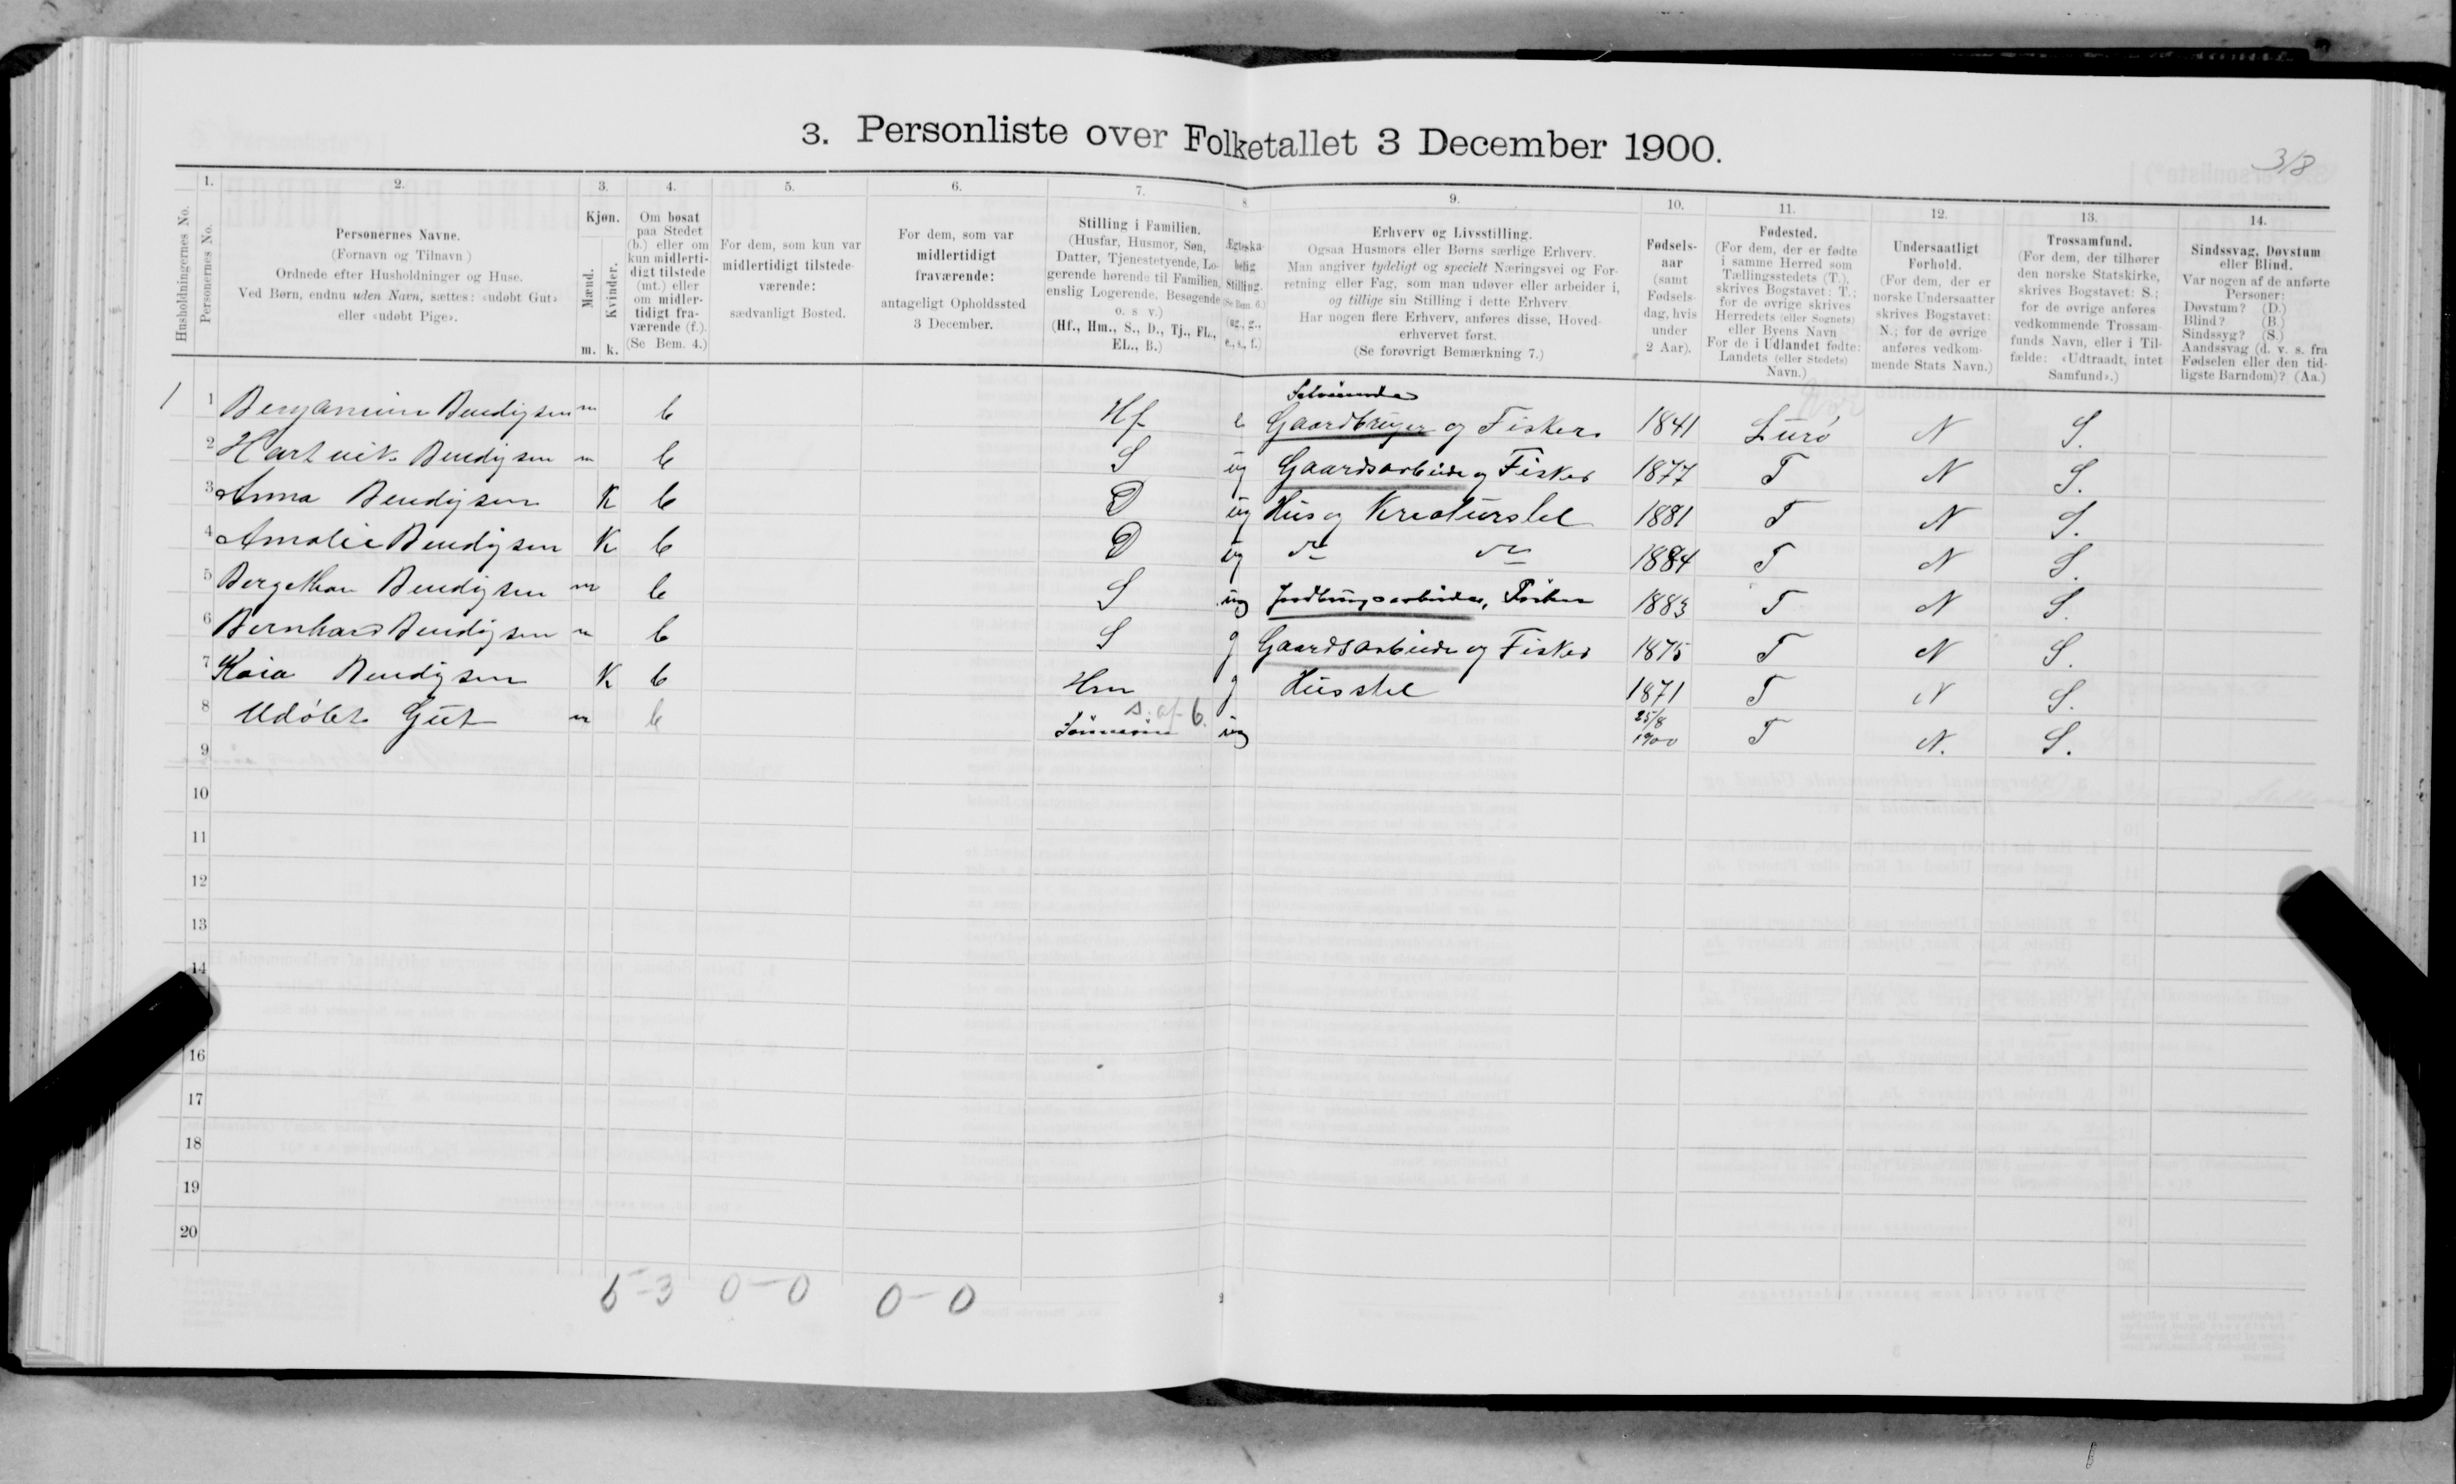 3. Personliste over Folketallet 3 December 1900.
318
1. 2. 3. 4. 5. 6. 7. 8. 9. 10. 11. 12. 13. 14.
Husholdningernes No.
Personernes No.
Personernes Navne.
(Fornavn og Tilnavn)
Ordnede efter Husholdninger og Huse.
Ved Børn, endnu uden Navn, sættes: «udøbt Gut»
eller «udøbt Pige».
Kjøn.
Mænd.
Kvinder.
m. k.
Om bosat
paa Stedet
(b.) eller om
kun midlerti-
digt tilstede
(mt.) eller
om midler-
tidigt fra-
værende (f.).
(Se Bem. 4.)
For dem, som kun var
midlertidigt tilstede-
værende:
sædvanligt Bosted.
For dem, som var
midlertidigt
fraværende:
antageligt Opholdssted
3 December.
Stilling i Familien.
(Husfar, Husmor, Søn,
Datter, Tjenestetyende, Lo-
gerende hørende til Familien,
enslig Logerende, Besøgende
o. s v.)
(Hf., Hm., S., D., Tj., FL.,
EL., B.)
Ægteska-
belig
Stilling.
(Se Bem. 6.)
(ug., g.,
e., s., f.)
Erhverv og Livsstilling.
Ogsaa Husmors eller Børns særlige Erhverv.
Man angiver tydeligt og specielt Næringsvei og For-
retning eller Fag, som man udøver eller arbeider i,
og tillige sin Stilling i dette Erhverv.
Har nogen flere Erhverv, anføres disse, Hoved-
erhvervet først.
(Se forøvrigt Bemærkning 7.)
Fødsels-
aar
(samt
Fødsels-
dag, hvis
under
2 Aar).
Fødested.
(For dem, der er fødte
i samme Herred som
Tællingsstedets (T.),
skrives Bogstavet: T.;
for de øvrige skrives
Herredets (eller Sognets)
eller Byens Navn
For de i Udlandet fødte:
Landets (eller Stedets)
Navn.)
Undersaatligt
Forhold.
(For dem, der er
norske Undersaatter
skrives Bogstavet:
N.; for de øvrige
anføres vedkom-
mende Stats Navn.)
Trossamfund.
(For dem, der tilhører
den norske Statskirke,
skrives Bogstavet: S.;
for de øvrige anføres
vedkommende Trossam-
funds Navn, eller i Til-
fælde: «Udtraadt, intet
Samfund».)
Sindssvag, Døvstum
eller Blind.
Var nogen af de anførte
Personer:
Døvstum? (D.)
Blind? (B.)
Sindssyg? (S.)
Aandssvag (d. v. s. fra
Fødselen eller den tid-
ligste Barndom)? (Aa.)
Selveiende
1 1 Benjamin Bendigsen m b Hf e Gaardbruger og Fisker 1841 Lurö N S.
2 Hartvik Bendigsen m b S ug Gaardsarbeide og Fisker 1877 T N S.
3 Anna Bendigsen K b D ug Hus og Kreaturstel 1881 T N S.
4 Amalie Bendigsen K b D ug do do 1884 T N S.
5 Bergethon Bendigsen m b S ug Jordbrugsarbeider, Fisker 1883 T N S.
6 Bernhard Bendigsen m b S g Gaardsarbeide og Fisker 1875 T N S.
7 Kaia Bendigsen K b Hm g Husstel 1871 T N S.
s. af 6.
8 Udøbt Gut m b Sønnesøn ug 25/8 1900 T N. S.
9
10
11
12
13
14
16
17
18
19
20
5-3 0-0 0-0